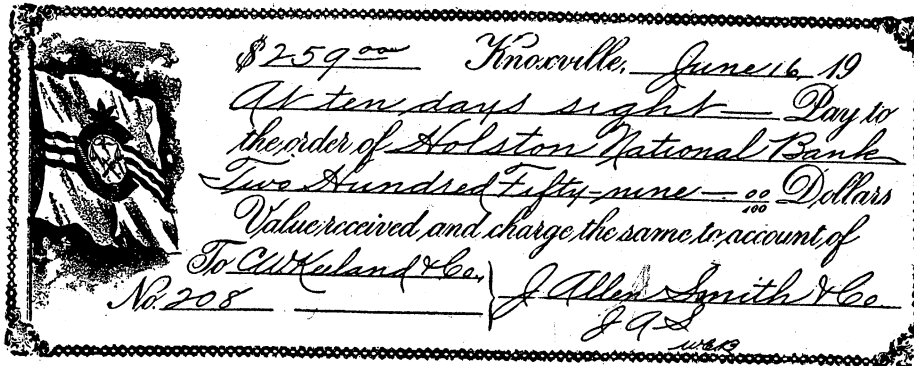 $259 00/100 Knoxville, June 16, 19
At ten days sight — Pay to
the order of Holston National Bank
Two Hundred Fifty-nine — 00/100 Dollars
Value received and charge the same to account of
To CW Keeland & Co.
No. 208
J Allen Smith & Co.
J A S